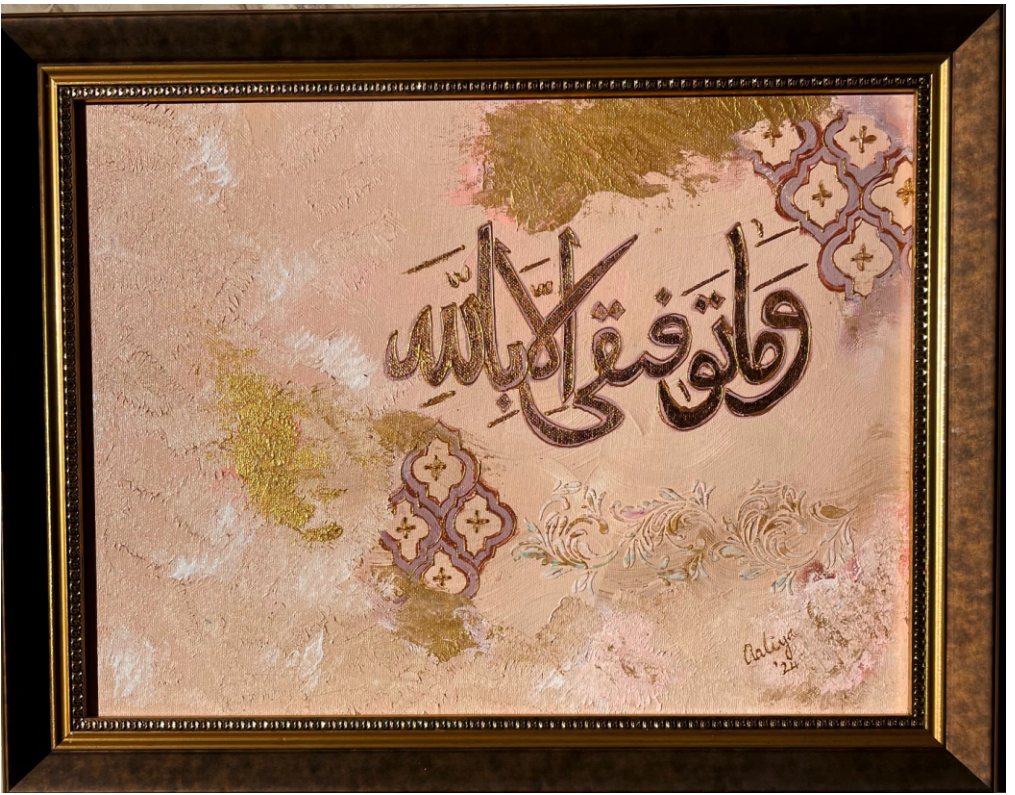 وما توفىقى الا بالله
Aaliya
'24